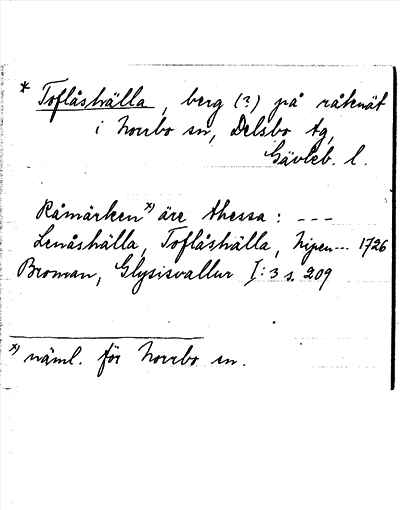 * Toflåshälla, berg (?) på råknät
i Norrbo sn, Delsbo tg,
Gävleb. l.
Råmärken x) äre thessa: ---
Lenåshälla, Toflåshälla, Nipen--- 1726
Broman, Glysisvallur I:3 s. 209
x) näml. för Norrbo sn.